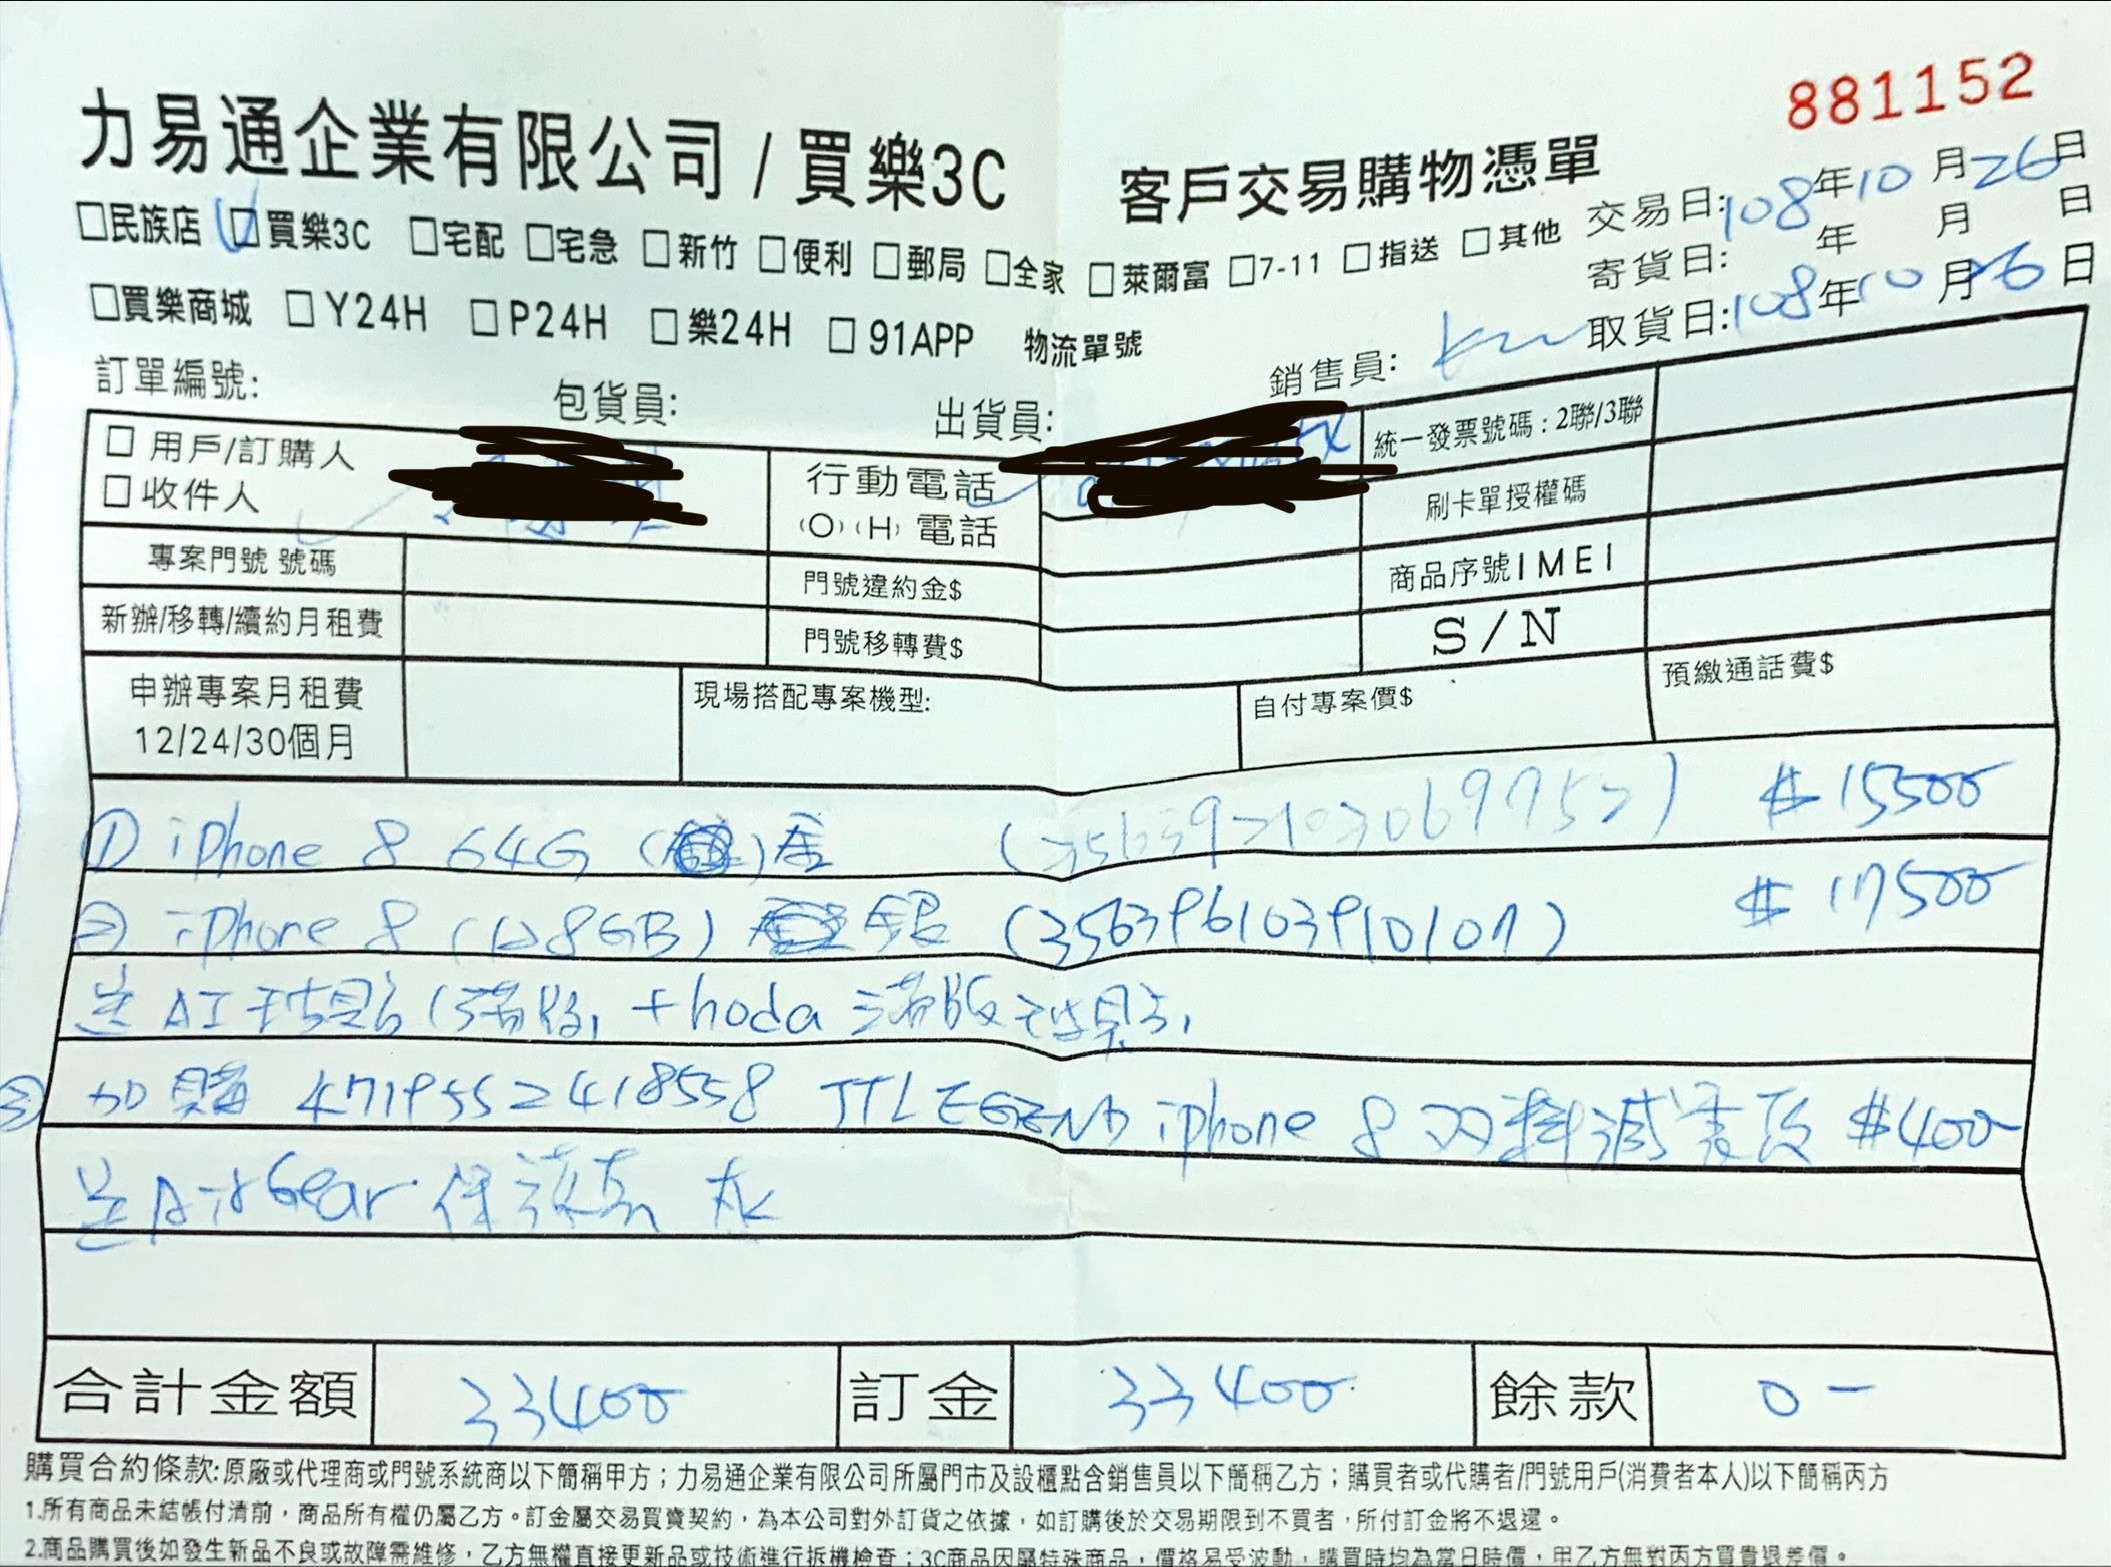 881152
力易通企業有限公司/買樂3C 客戶交易購物憑單
交易日:108年10月26日
□民族店 □買樂3C □宅配 □宅急 □新竹 □便利 □郵局 □全家 □萊爾富 □7-11 □指送 □其他
寄貨日: 年 月 日
□買樂商城 □Y24H □P24H □樂24H □91APP 物流單號
取貨日:108年10月26日
訂單編號: 包貨員: 出貨員: 銷售員:
□用戶/訂購人
□收件人
行動電話
(O)(H)電話
統一發票號碼:2聯/3聯
刷卡單授權碼
專案門號 號碼 門號違約金$ 商品序號IMEI
新辦/移轉/續約月租費 門號移轉費$ S/N
申辦專案月租費
12/24/30個月
現場搭配專案機型: 自付專案價$ 預繳通話費$
① iPhone 8 64G ( ) $15500
② iPhone 8 (128GB) 銀 (356396103910107) $17500
送 AI (滿版) + hoda 滿版玻貼
③ 加購 4719552418558 JTLEGEND iPhone 8 双料減震 $400
送 AirGear 保護 灰
合計金額 33400 訂金 33400 餘款 0-
購買合約條款:原廠或代理商或門號系統商以下簡稱甲方；力易通企業有限公司所屬門市及設櫃點含銷售員以下簡稱乙方；購買者或代購者/門號用戶(消費者本人)以下簡稱丙方
1.所有商品未結帳付清前，商品所有權仍屬乙方。訂金屬交易買賣契約，為本公司對外訂貨之依據，如訂購後於交易期限到不買者，所付訂金將不退還。
2.商品購買後如發生新品不良或故障需維修，乙方無權直接更新品或技術進行拆機檢查；3C商品因屬特殊商品，價格易受波動，購買時均為當日時價，甲乙方無對丙方買貴退差價。